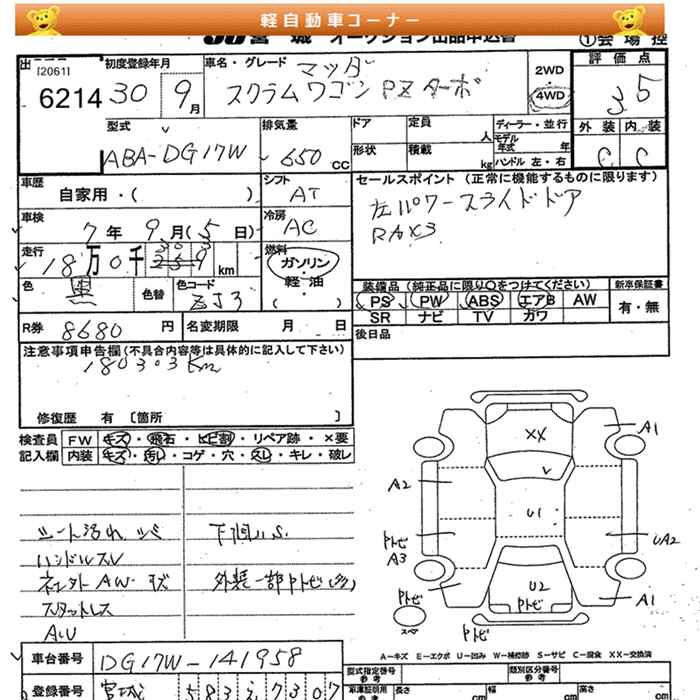 軽自動車コーナー
JU 宮城 オークション出品申込書 ①会場控
出 [2061] 初度登録年月 車名・グレード マツダ 2WD 評価点
6214 30 9月 スクラムワゴン PZターボ 4WD 3.5
型式 排気量 ドア 定員 人 ディーラー・並行 外装 内装
ABA-DG17W 650 CC 形状 積載 kg モデル年式 年 ハンドル 左・右 C C
車歴 自家用・( ) シフト AT セールスポイント (正常に機能するものに限ります)
車検 7年 9月(5日) 冷房 AC 左パワースライドドア
走行 18万0千 km 燃料 ガソリン・軽油 ( )
色 黒 色替 色コード ZJ3 装備品(純正品に限り○をつけてください) 新車保証書
PS PW ABS エアB AW 有・無
SR ナビ TV カワ
R券 8680円 名変期限 月 日 後日品
注意事項申告欄(不具合内容等は具体的に記入して下さい)
180303Km
修復歴 有 〔箇所 〕
検査員 FW キズ・飛石・ヒビ割・リペア跡・×要
記入欄 内装 キズ・汚れ・コゲ・穴・スレ・キレ・破レ
A1
XX
A2
V
U1
Pトビ
A3
UA2
Pトビ
U2
Pトビ
A1
スペア
Pトビ
シート汚れ シミ 下廻りS
ハンドルスレ
外装一部Pトビ(多)
スタットレス
A-キズ E-エクボ U-凹み W-補修跡 S-サビ C-腐食 XX-交換済
車台番号 DG17W-141958
型式指定番号 参考 類別区分番号 参考
登録番号 宮城 583 え 7307 車庫証明用 参考 長さ cm 幅 cm 高さ cm